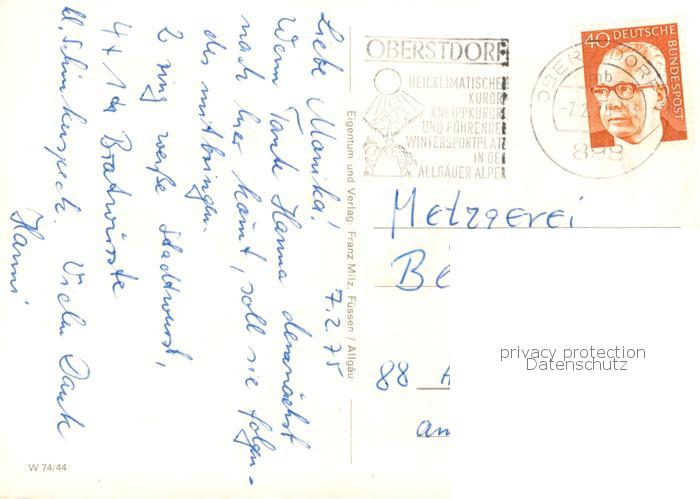 7.2.75
Liebe Monika!
Wenn Tante Hanna demnächst
nach hier kommt, soll sie folgen-
des mitbringen.
2 Ring weiße Stadtwurst,
4 x 1 Bratwürste
kl. Schinkenspeck. Vielen Dank
Hanni
W 74/44
Eigentum und Verlag: Franz Milz, Füssen / Allgäu
OBERSTDORF
HEILKLIMATISCHER
KURORT
KNEIPPKURORT
UND FÜHRENDER
WINTERSPORTPLATZ
IN DEN
ALLGÄUER ALPEN
OBERSTDORF
898
40 DEUTSCHE BUNDESPOST
Metzgerei
Be
88 A
an
privacy protection
Datenschutz